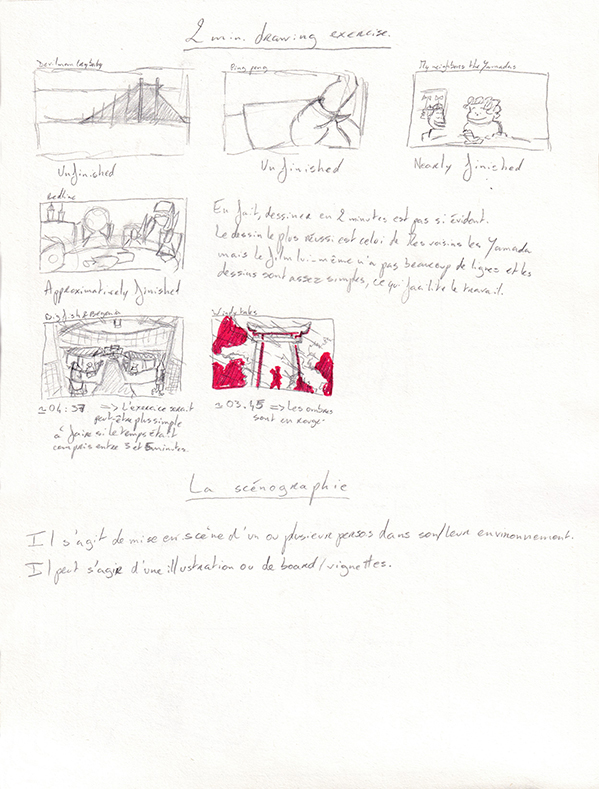 2 min. drawing exercise.
Devilman Crybaby
Ping pong
My neighbors the Yamadas
Unfinished
Unfinished
Nearly finished
Redline
Approximatively finished
En fait, dessiner en 2 minutes est pas si évident.
Le dessin le plus réussi est celui de Mes voisins les Yamada
mais le film lui-même n'a pas beaucoup de lignes et les
dessins sont assez simples, ce qui facilite le travail.
Big fish & Begonia
≃ 04:37 => L'exercice serait
peut-être plus simple
à faire si le temps était
compris entre 3 et 5 minutes.
Windy tales
≃ 03.45 => Les ombres
sont en rouge.
La scénographie
Il s'agit de mise en scène d'un ou plusieur persos dans son/leur environnement.
Il peut s'agir d'une illustration ou de board/vignettes.